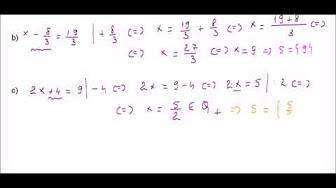 b) x - 8/3 = 19/3 | + 8/3 (=) x = 19/3 + 8/3 (=) x = 19+8/3 (=)
(=) x = 27/3 (=) x = 9 => S = {9}
c) 2x + 4 = 9 | - 4 (=) 2x = 9 - 4 (=) 2x = 5 | : 2 (=)
(=) x = 5/2 ∈ Q+ => S = { 5/